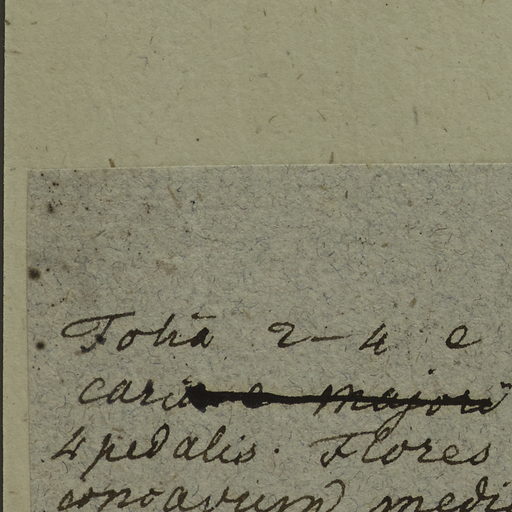 Folia 2-4 e
cari e majori
4 pedalis. Flores
concavum medi